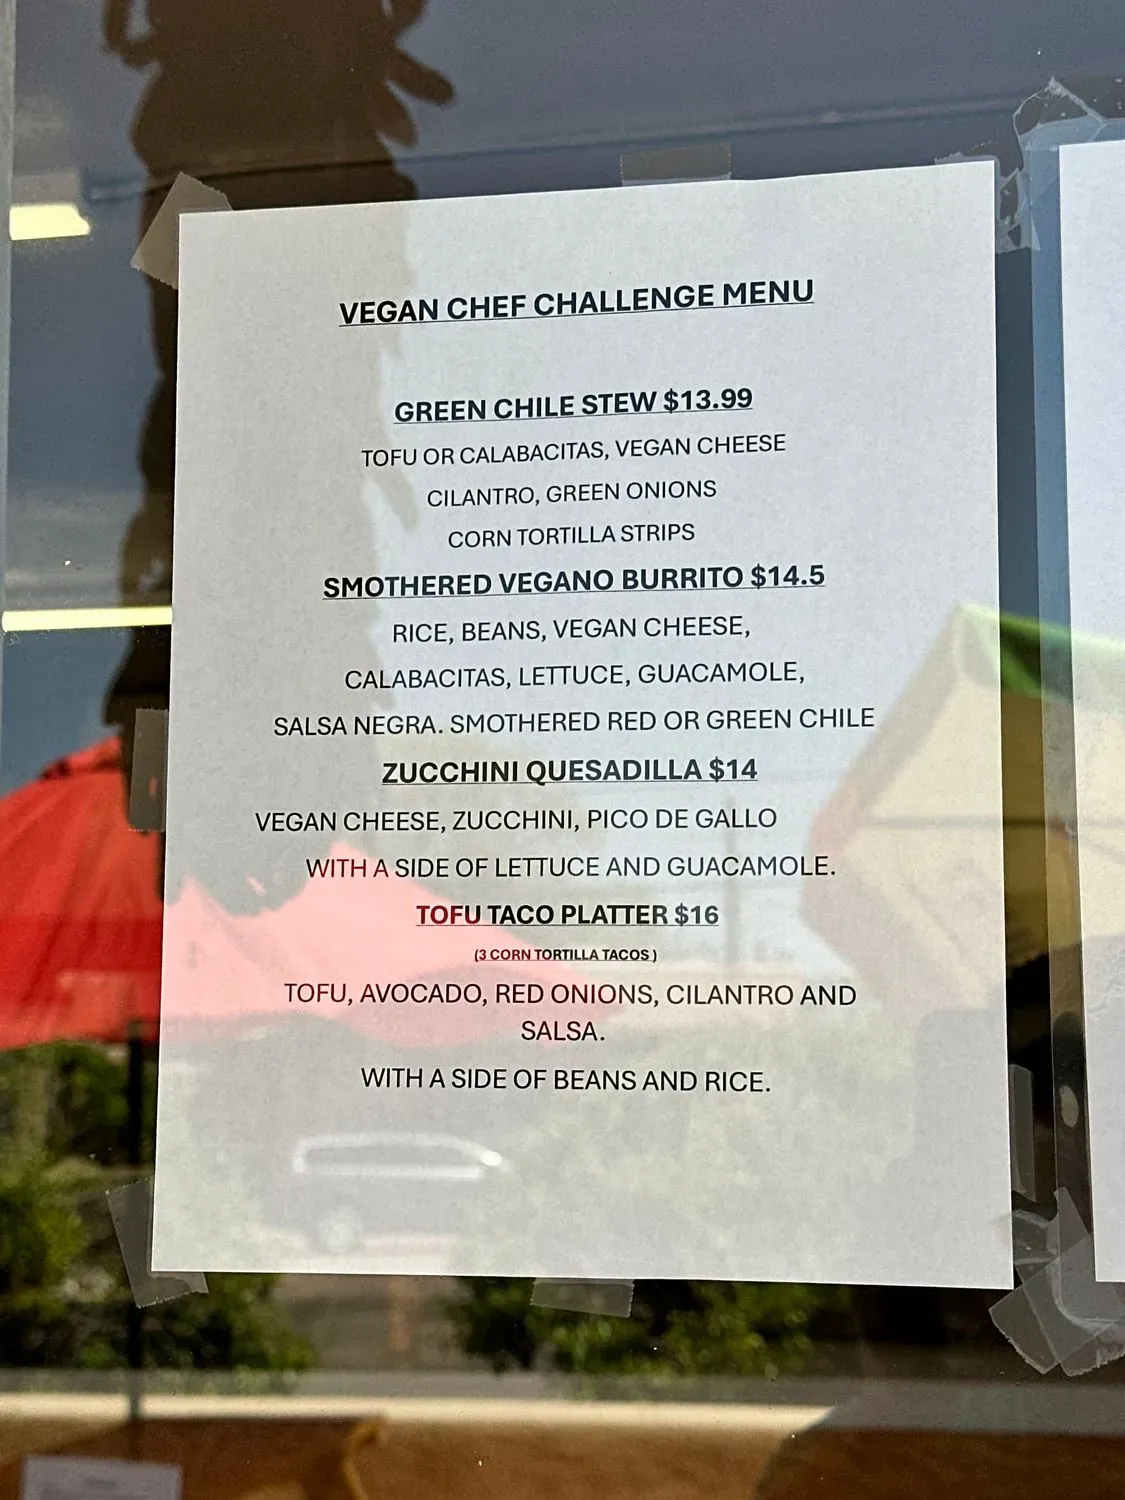 VEGAN CHEF CHALLENGE MENU
GREEN CHILE STEW $13.99
TOFU OR CALABACITAS, VEGAN CHEESE
CILANTRO, GREEN ONIONS
CORN TORTILLA STRIPS
SMOTHERED VEGANO BURRITO $14.5
RICE, BEANS, VEGAN CHEESE,
CALABACITAS, LETTUCE, GUACAMOLE,
SALSA NEGRA. SMOTHERED RED OR GREEN CHILE
ZUCCHINI QUESADILLA $14
VEGAN CHEESE, ZUCCHINI, PICO DE GALLO
WITH A SIDE OF LETTUCE AND GUACAMOLE.
TOFU TACO PLATTER $16
(3 CORN TORTILLA TACOS )
TOFU, AVOCADO, RED ONIONS, CILANTRO AND
SALSA.
WITH A SIDE OF BEANS AND RICE.